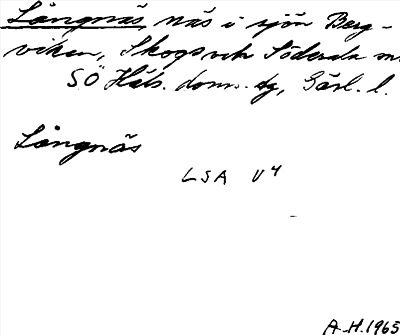 Långnäs näs i sjön Berg-
viken, Skogsvik Söderala sn.
SÖ Häls. doms. tg, Gävl. l.
Långnäs
LSA V4
A.H. 1965